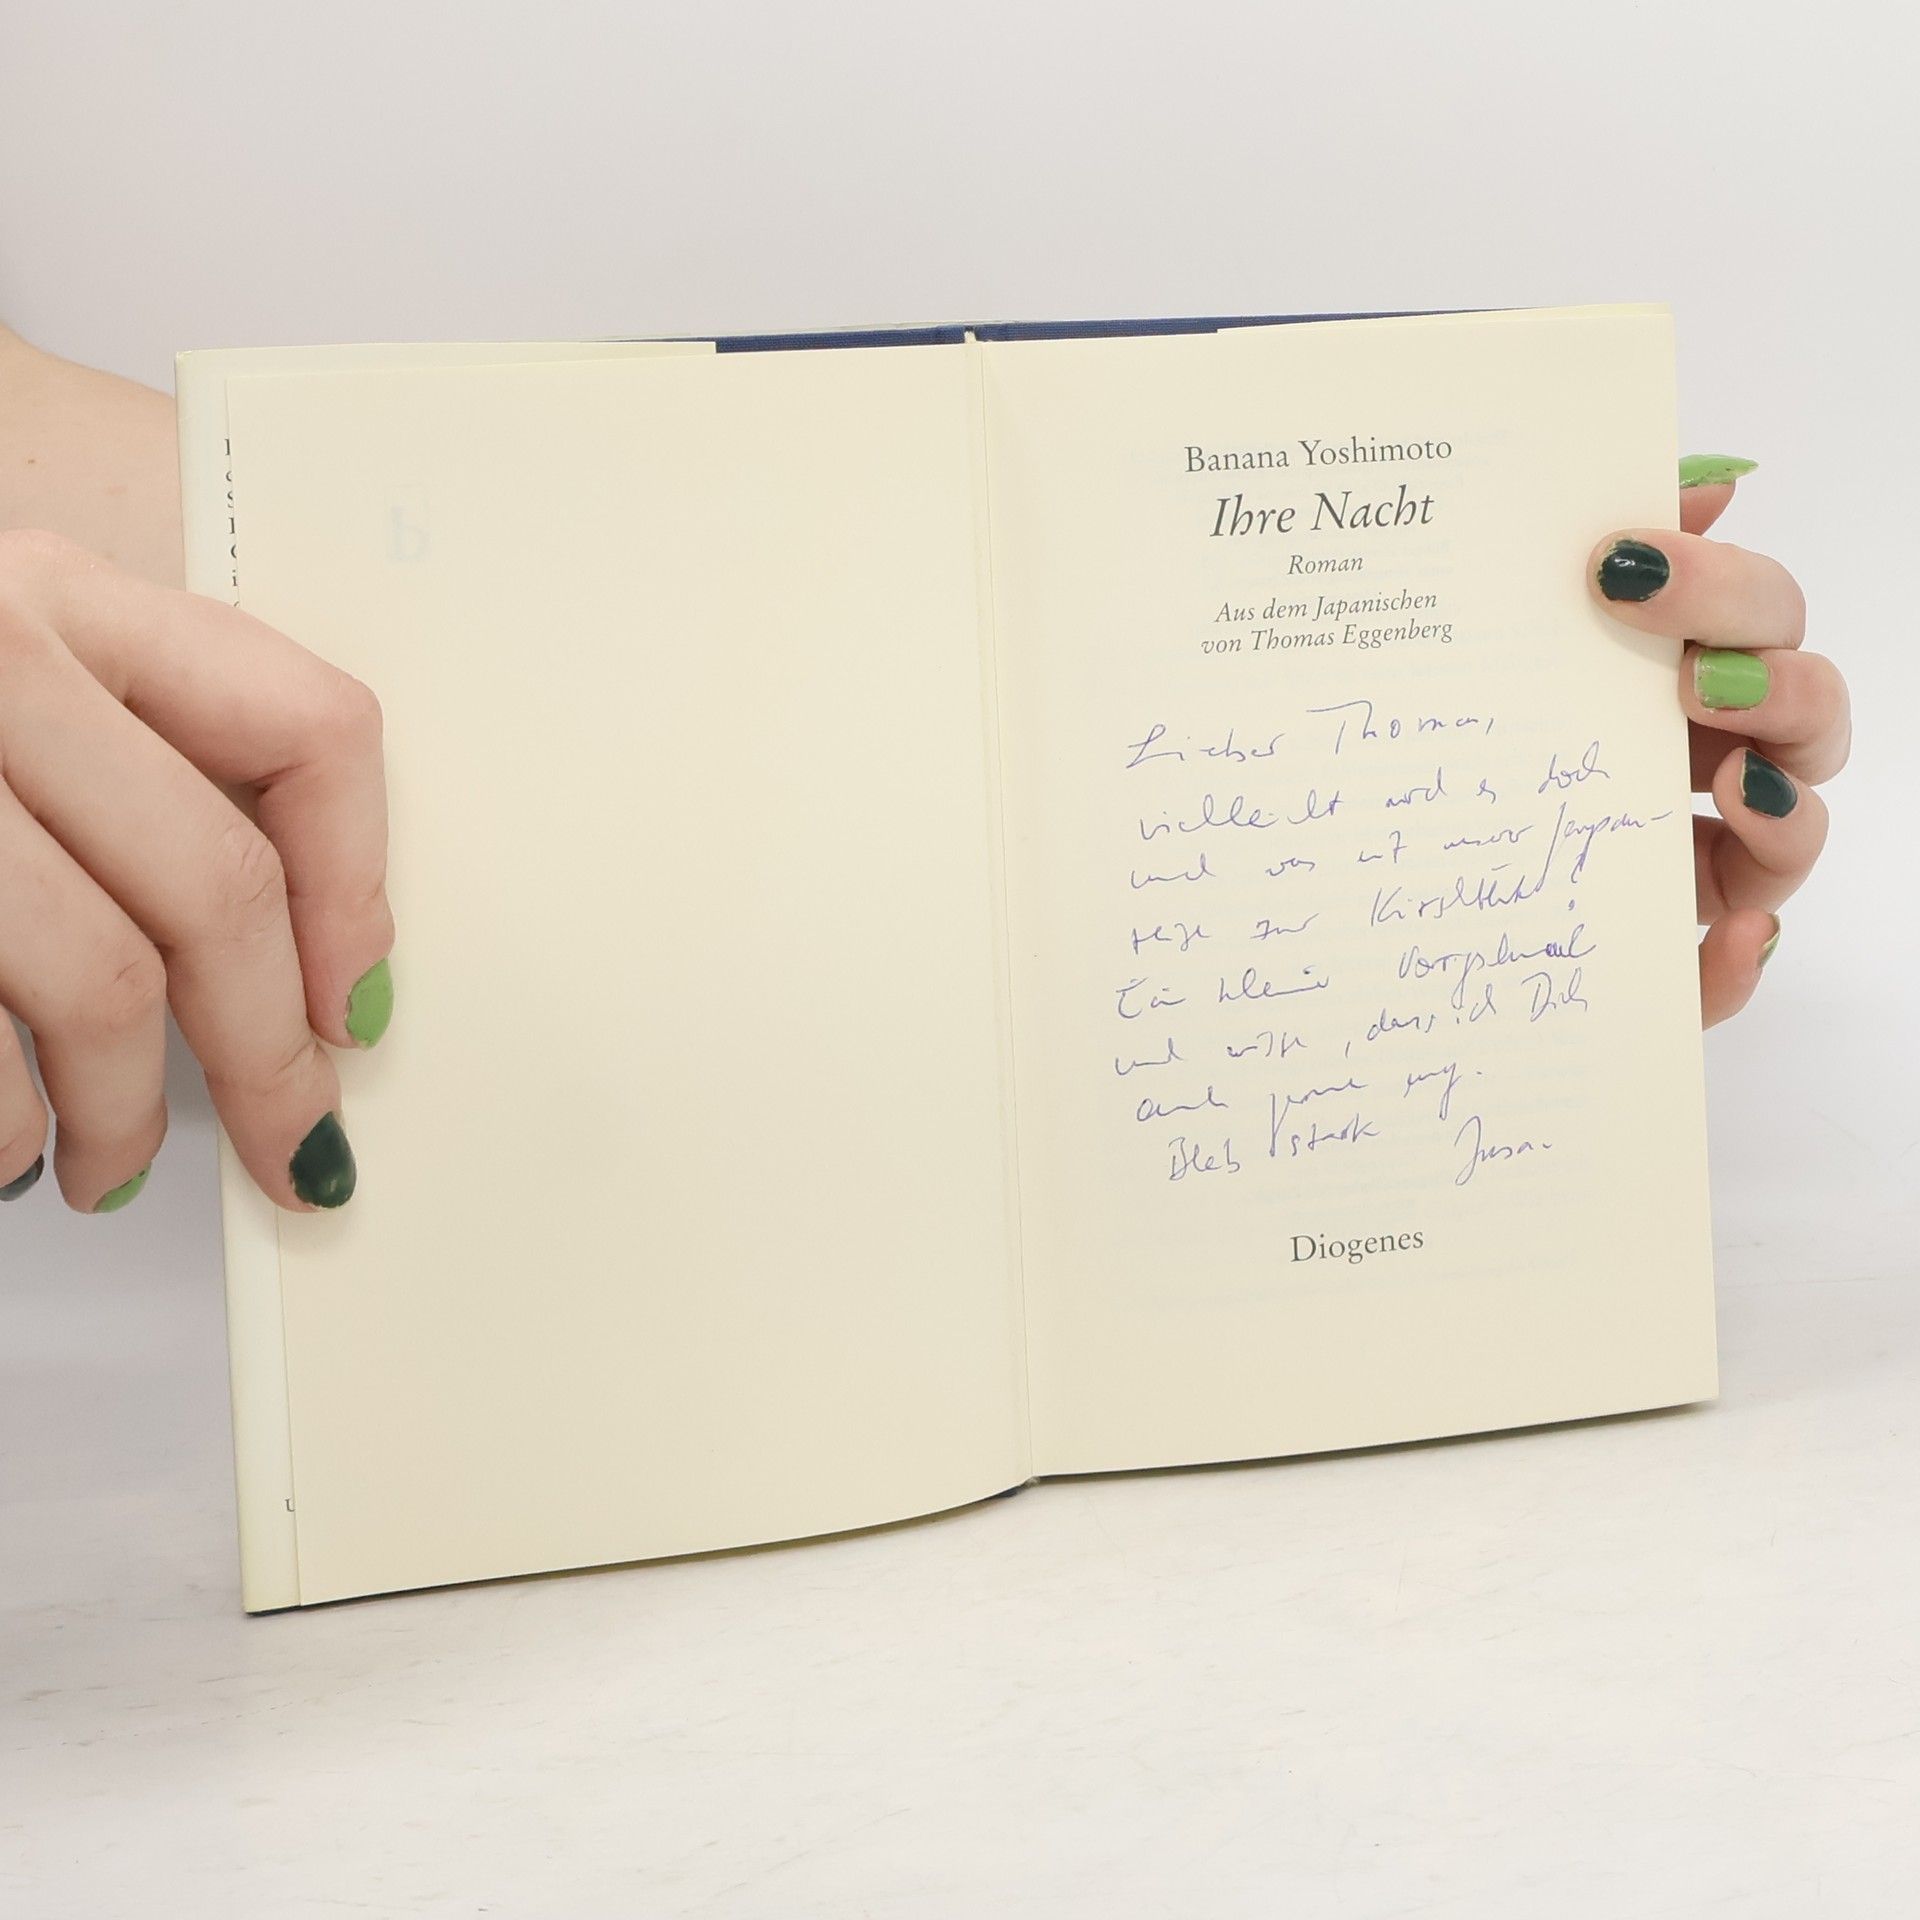 Banana Yoshimoto
Ihre Nacht
Roman
Aus dem Japanischen
von Thomas Eggenberg
Lieber Thomas,
vielleicht wird es doch
und was mit unserer Japan-
reise zur Kirschblüte?
Ein kleiner Vorgeschmack
und wisse, dass ich Dich
auch gerne mag.
Bleib stark
Diogenes